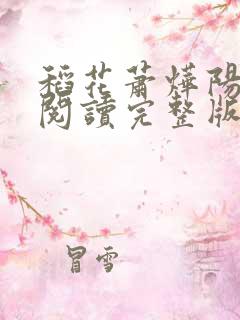 稻花蕭燁陽
閱讀完整版
冒雪